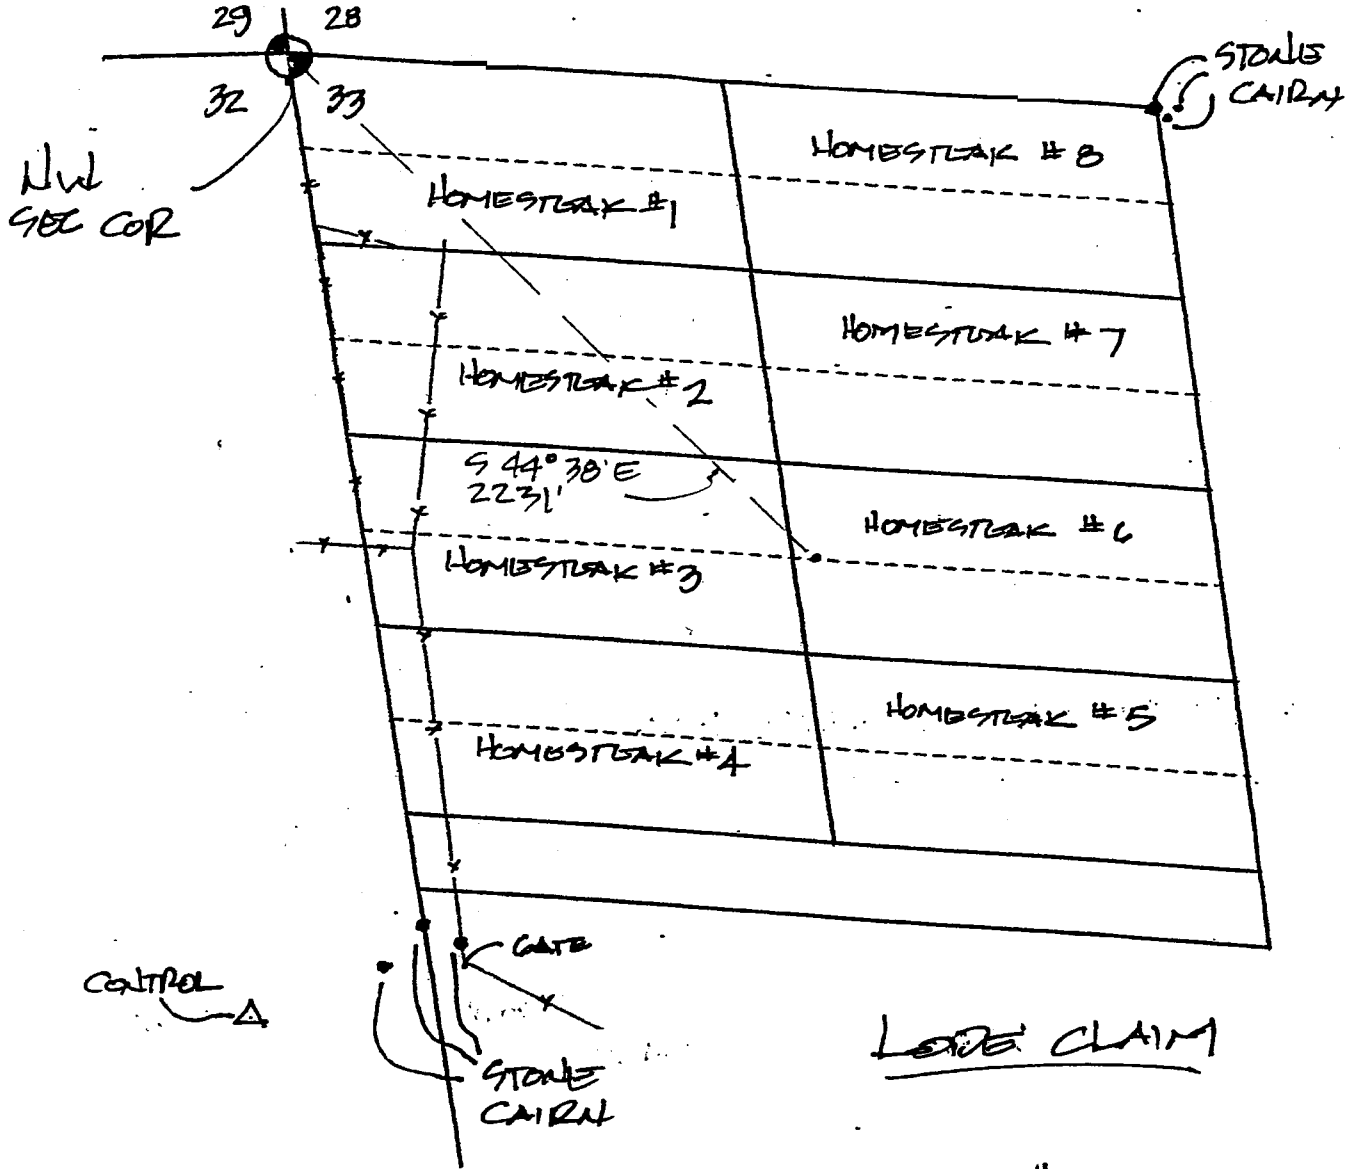 29 28
32 33
STONE
CAIRN
NW
SEC COR
HOMESTEAK #8
HOMESTEAK #1
HOMESTEAK #7
HOMESTEAK #2
S 44° 38' E
2231'
HOMESTEAK #6
HOMESTEAK #3
HOMESTEAK #5
HOMESTEAK #4
GATE
CONTROL
LODE CLAIM
STONE
CAIRN